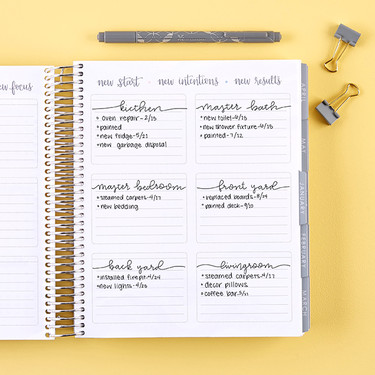 new focus
new start · new intentions · new results
kitchen
• oven repair - 2/25
• painted
• new fridge - 5/21
• new garbage disposal
master bath
• new toilet - 6/19
• new shower fixture - 6/19
• painted - 7/22
master bedroom
• steamed carpets - 4/27
• new bedding
front yard
• replaced boards - 8/29
• painted deck - 9/20
back yard
• installed firepit - 4/24
• new lights - 4/26
livingroom
• steamed carpets - 4/27
• decor pillows
• coffee bar - 3/21
JANUARY
FEBRUARY
MARCH